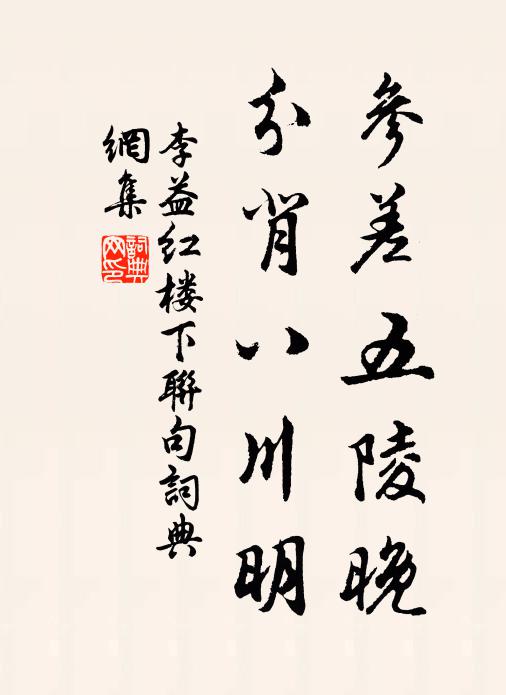 參差五陵晚
分背八川明
李益红楼下聯句詞典
網集
詞典
网印